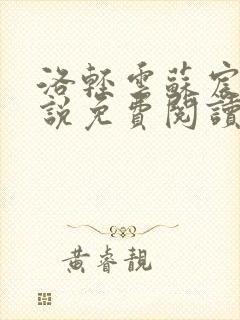 洛輕雲蘇宸
說免費閱讀
黃睿靚